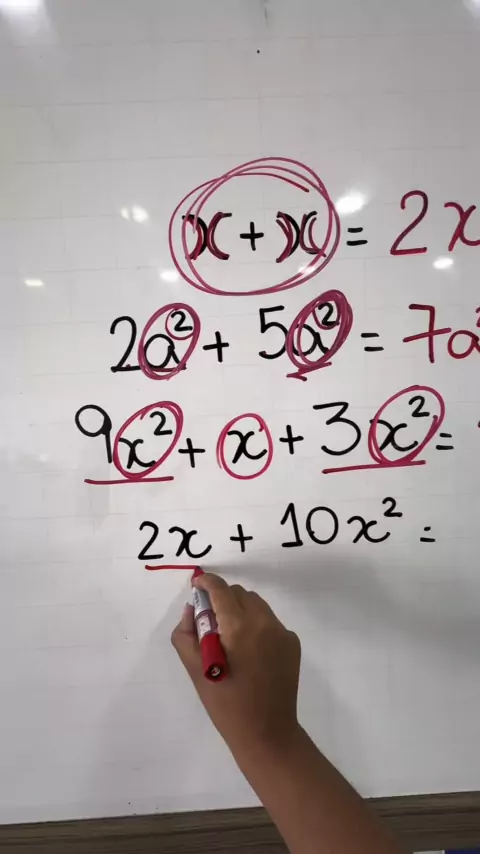 x + x = 2x
2a² + 5a² = 7a²
9x² + x + 3x² =
2x + 10x² =